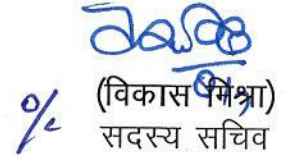 (विकास मिश्रा)
सदस्य सचिव